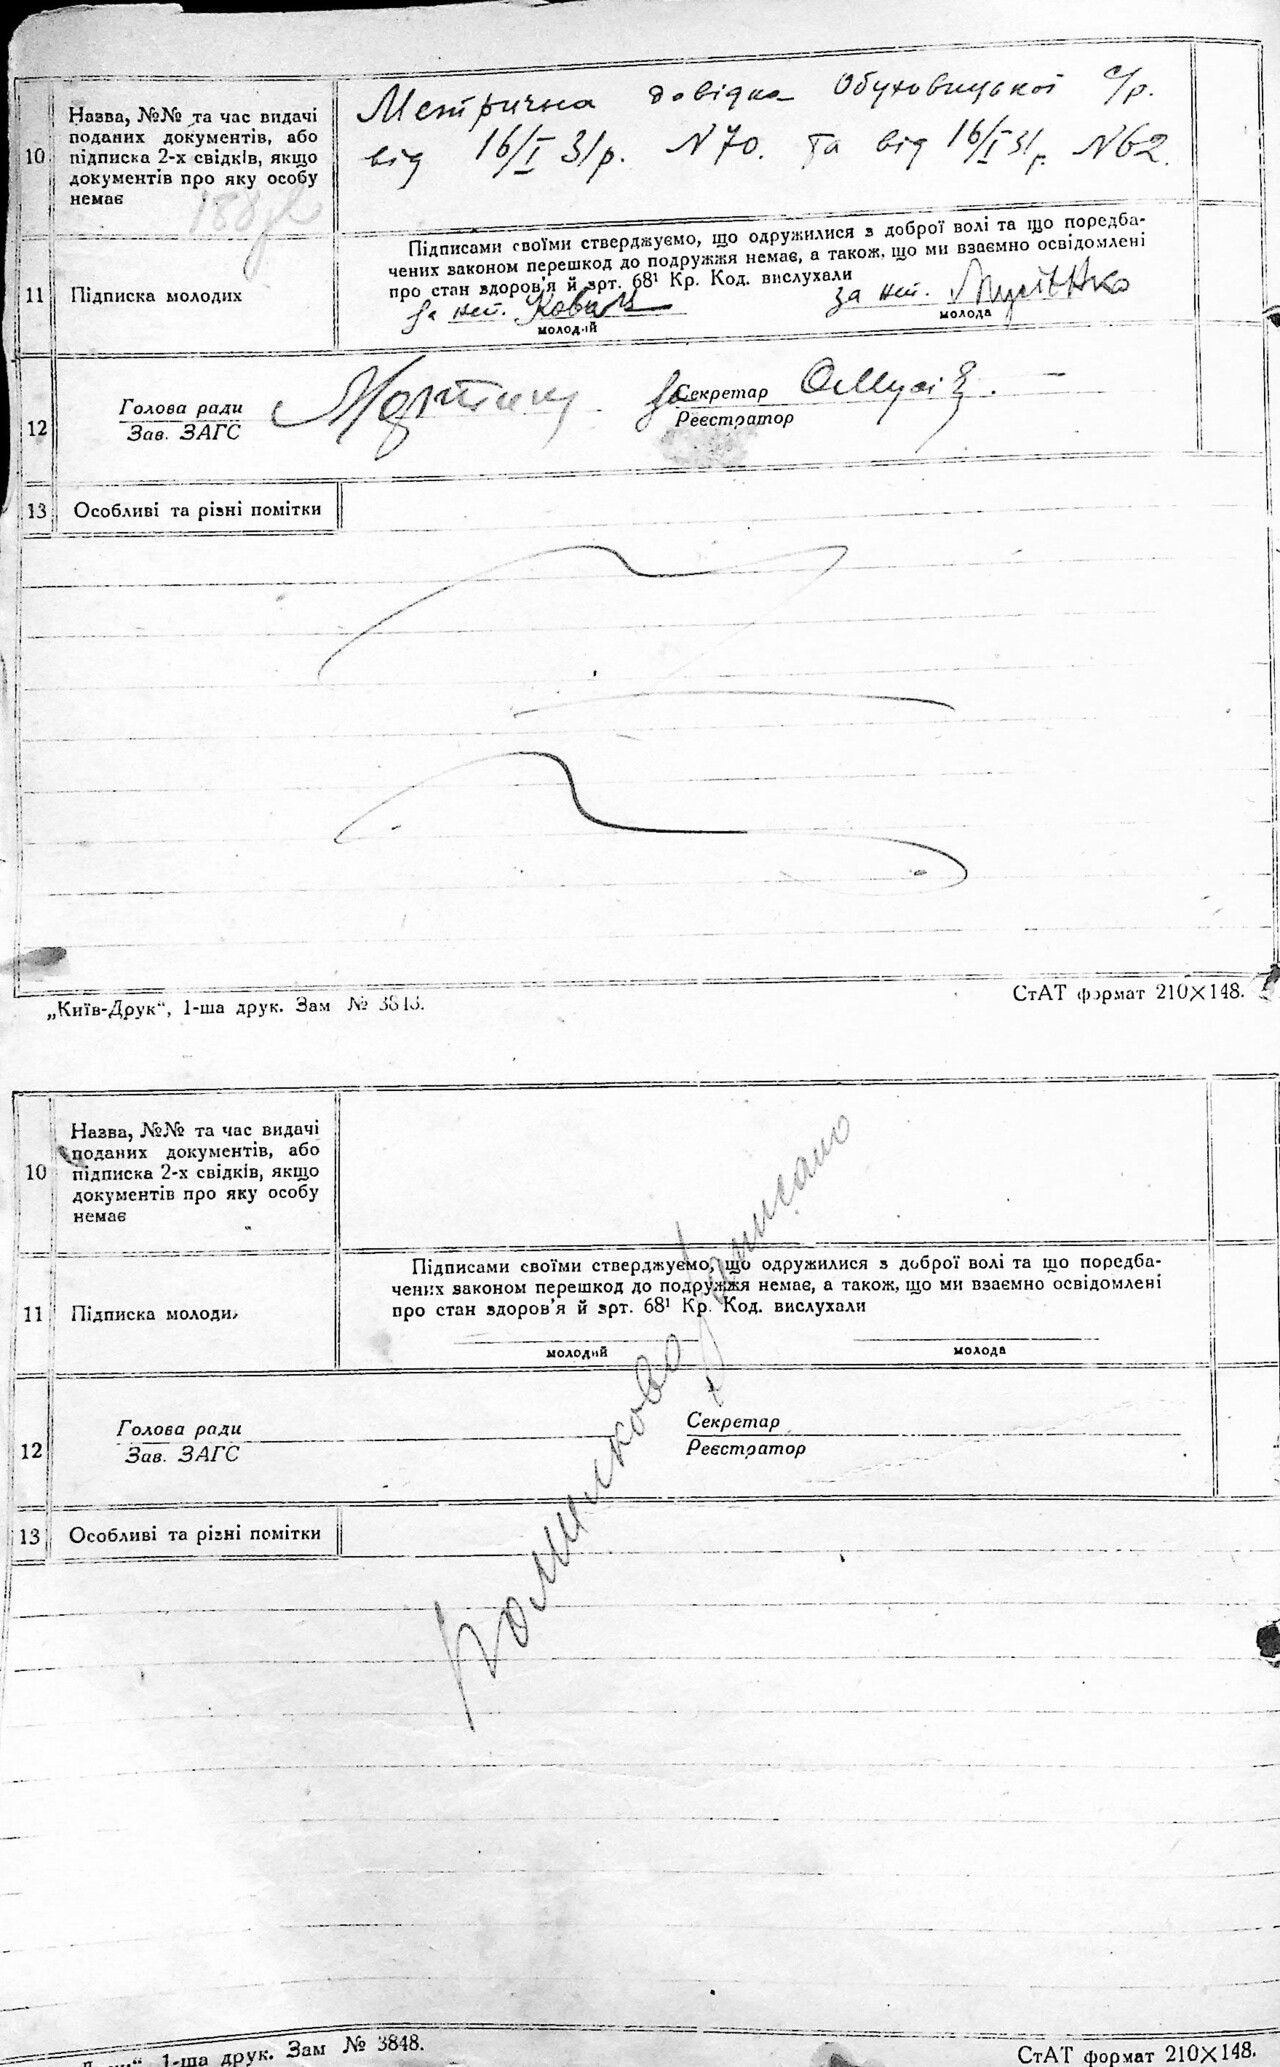 10
Назва, №№ та час видачі
поданих документів, або
підписка 2-х свідків, якщо
документів про яку особу
немає
Метрична довідка Обуховицької с/р.
від 16/I 31р. N70. та від 16/I 31р. N62.
11
Підписка молодих
Підписами своїми стверджуємо, що одружилися з доброї волі та що поредба-
чених законом перешкод до подружжя немає, а також, що ми взаємно освідомлені
про стан здоров'я й арт. 68¹ Кр. Код. вислухали
за неп. Коваль
за неп.
молодий
молода
12
Голова ради
Зав. ЗАГС
за Секретар
Реєстратор
13
Особливі та різні помітки
„Київ-Друк“, 1-ша друк. Зам № 3848.
СтАТ формат 210×148.
10
Назва, №№ та час видачі
поданих документів, або
підписка 2-х свідків, якщо
документів про яку особу
немає
11
Підписка молоди
Підписами своїми стверджуємо, що одружилися з доброї волі та що поредба-
чених законом перешкод до подружжя немає, а також, що ми взаємно освідомлені
про стан здоров'я й арт. 68¹ Кр. Код. вислухали
молодий
молода
12
Голова ради
Зав. ЗАГС
Секретар
Реєстратор
13
Особливі та різні помітки
Помилково записано
1-ша друк. Зам № 3848.
СтАТ формат 210×148.